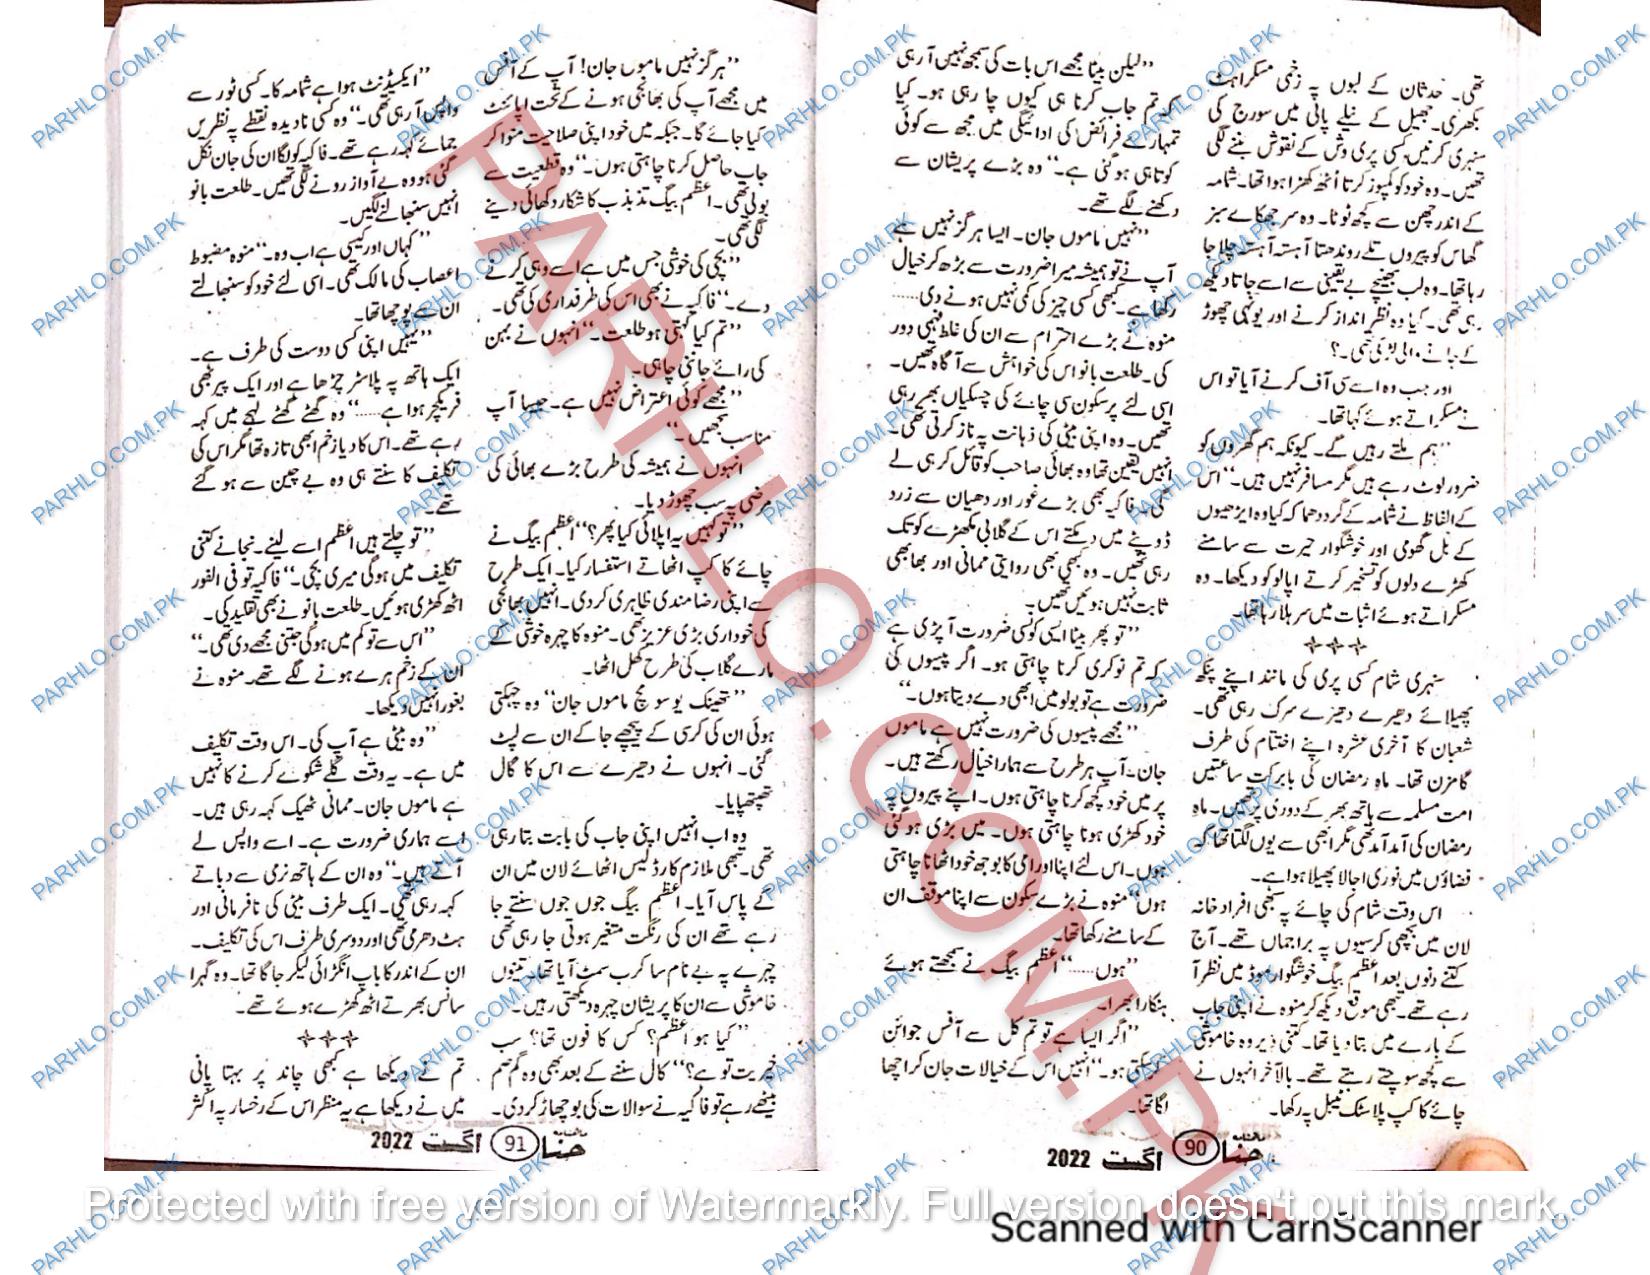 تھی۔ حدثان کے لبوں پہ زخمی مسکراہٹ
بکھری۔ جھیل کے نیلے پانی میں سورج کی
سنہری کرنیں کسی پری وش کے نقوش بننے لگی
تھیں۔ وہ خود کو کمپوز کرتا اٹھ کھڑا ہوا تھا۔ شمامہ
کے اندر چھن سے کچھ ٹوٹا۔ وہ سر جھکائے سبز
گھاس کو پیروں تلے روندھتا آہستہ آہستہ چلا جا
رہا تھا۔ وہ لب بھینچے بے یقینی سے اسے جاتا دیکھ
رہی تھی۔ کیا وہ نظر انداز کرنے اور یونہی چھوڑ
کے جانے والی لڑکی تھی۔؟
اور جب وہ اسے سی آف کرنے آیا تو اس
نے مسکراتے ہوئے کہا تھا۔
''ہم ملتے رہیں گے۔ کیونکہ ہم گھروں کو
ضرور لوٹ رہے ہیں مگر مسافر نہیں ہیں۔'' اس
کے الفاظ نے شمامہ کے گرد دھماکہ کیا وہ ایڑھیوں
کے بل گھومی اور خوشگوار حیرت سے سامنے
کھڑے دلوں کو تسخیر کرتے اپالو کو دیکھا۔ وہ
مسکراتے ہوئے اثبات میں سر ہلا رہا تھا۔
✧✧✧
سنہری شام کسی پری کی مانند اپنے پنکھ
پھیلائے دھیرے دھیرے سرک رہی تھی۔
شعبان کا آخری عشرہ اپنے اختتام کی طرف
گامزن تھا۔ ماہ رمضان کی بابرکت ساعتیں
امت مسلمہ سے ہاتھ بھر کے دوری پر تھیں۔ ماہِ
رمضان کی آمد آمد تھی مگر ابھی سے یوں لگتا تھا کہ
فضاؤں میں نوری اجالا پھیلا ہوا ہے۔
اس وقت شام کی چائے پہ سبھی افراد خانہ
لان میں بچھی کرسیوں پہ براجماں تھے۔ آج
کتنے دنوں بعد اعظم بیگ خوشگوار موڈ میں نظر آ
رہے تھے۔ تبھی موقع دیکھ کر منوہ نے اپنی جاب
کے بارے میں بتا دیا تھا۔ کتنی دیر وہ خاموشی
سے کچھ سوچتے رہے تھے۔ بالآخر انہوں نے
چائے کا کپ پلاسٹک ٹیبل پہ رکھا۔
''لیکن بیٹا مجھے اس بات کی سمجھ نہیں آ رہی
کہ تم جاب کرنا ہی کیوں چاہ رہی ہو۔ کیا
تمہارے فرائض کی ادائیگی میں مجھ سے کوئی
کوتاہی ہو گئی ہے۔'' وہ بڑے پریشان سے
دکھنے لگے تھے۔
''نہیں ماموں جان۔ ایسا ہرگز نہیں ہے
آپ نے تو ہمیشہ میرا ضرورت سے بڑھ کر خیال
رکھا ہے۔ کبھی کسی چیز کی کمی نہیں ہونے دی......
منوہ نے بڑے احترام سے ان کی غلط فہمی دور
کی۔ طلعت بانو اس کی خواہش سے آگاہ تھیں۔
اسی لئے پرسکون سی چائے کی چسکیاں بھر رہی
تھیں۔ وہ اپنی بیٹی کی ذہانت پہ ناز کرتی تھی۔
انہیں یقین تھا وہ بھائی صاحب کو قائل کر ہی لے
گی۔ فاکہہ بھی بڑے غور اور دھیان سے زرد
ڈوپٹے میں دمکتے اس کے گلابی مکھڑے کو تک
رہی تھیں۔ وہ کبھی بھی روایتی ممانی اور بھابھی
ثابت نہیں ہوئیں تھیں۔
''تو پھر بیٹا ایسی کونسی ضرورت آ پڑی ہے
کہ تم نوکری کرنا چاہتی ہو۔ اگر پیسوں کی
ضرورت ہے تو بولو میں ابھی دے دیتا ہوں۔''
''مجھے پیسوں کی ضرورت نہیں ہے ماموں
جان۔ آپ ہر طرح سے ہمارا خیال رکھتے ہیں۔
پر میں خود کچھ کرنا چاہتی ہوں۔ اپنے پیروں پہ
خود کھڑی ہونا چاہتی ہوں۔ میں بڑی ہو گئی
ہوں۔ اس لئے اپنا اور امی کا بوجھ خود اٹھانا چاہتی
ہوں'' منوہ نے بڑے سکون سے اپنا موقف ان
کے سامنے رکھا تھا۔
''ہوں......'' اعظم بیگ نے سمجھتے ہوئے
ہنکارا بھرا۔
''اگر ایسا ہے تو تم کل سے آفس جوائن
کر سکتی ہو۔'' انہیں اس کے خیالات جان کر اچھا
لگا تھا۔
ماہنامہ حنا 90 اگست 2022
''ہرگز نہیں ماموں جان! آپ کے آفس
میں مجھے آپ کی بھانجی ہونے کے تحت اپائنٹ
کیا جائے گا۔ جبکہ میں خود اپنی صلاحیت منوا کر
جاب حاصل کرنا چاہتی ہوں۔'' وہ قطعیت سے
بولی تھی۔ اعظم بیگ تذبذب کا شکار دکھائی دینے
لگی تھی۔
''بچی کی خوشی جس میں ہے اسے وہی کرنے
دے۔'' فاکہہ نے بھی اس کی طرفداری کی تھی۔
''تم کیا کہتی ہو طلعت۔'' انہوں نے بہن
کی رائے جاننی چاہی۔
''مجھے کوئی اعتراض نہیں ہے۔ جیسا آپ
مناسب سمجھیں۔''
انہوں نے ہمیشہ کی طرح بڑے بھائی کی
مرضی پہ سب چھوڑ دیا۔
''تو کہیں پہ اپلائی کیا پھر؟'' اعظم بیگ نے
چائے کا کپ اٹھاتے استفسار کیا۔ ایک طرح
سے اپنی رضامندی ظاہری کر دی۔ انہیں بھانجی
کی خودداری بڑی عزیز تھی۔ منوہ کا چہرہ خوشی کے
مارے گلاب کی طرح کھل اٹھا۔
''تھینک یو سو مچ ماموں جان'' وہ چہکتی
ہوئی ان کی کرسی کے پیچھے جا کے ان سے لپٹ
گئی۔ انہوں نے دھیرے سے اس کا گال
تھپتھپایا۔
وہ اب انہیں اپنی جاب کی بابت بتا رہی
تھی۔ تبھی ملازم کارڈ لیس اٹھائے لان میں ان
کے پاس آیا۔ اعظم بیگ جوں جوں سنتے جا
رہے تھے ان کی رنگت متغیر ہوتی جا رہی تھی
چہرے پہ بے نام سا کرب سمٹ آیا تھا۔ تینوں
خاموشی سے ان کا پریشان چہرہ دیکھتی رہیں۔
''کیا ہو اعظم؟ کس کا فون تھا؟ سب
خیریت تو ہے؟'' کال سننے کے بعد بھی وہ گم صم
بیٹھے رہے تو فاکہہ نے سوالات کی بوچھاڑ کر دی۔
''ایکسیڈنٹ ہوا ہے شمامہ کا۔ کسی ٹور سے
واپس آ رہی تھی۔'' وہ کسی نادیدہ نقطے پہ نظریں
جمائے کہہ رہے تھے۔ فاکہہ کو لگا ان کی جان نکل
گئی ہو وہ بے آواز رونے لگی تھیں۔ طلعت بانو
انہیں سنبھالنے لگیں۔
''کہاں اور کیسی ہے اب وہ۔'' منوہ مضبوط
اعصاب کی مالک تھی۔ اسی لئے خود کو سنبھالتے
ان سے پوچھا تھا۔
''یہیں اپنی کسی دوست کی طرف ہے۔
ایک ہاتھ پہ پلاسٹر چڑھا ہے اور ایک پیر بھی
فریکچر ہوا ہے......'' وہ گھٹے گھٹے لہجے میں کہہ
رہے تھے۔ اس کا دیا زخم ابھی تازہ تھا مگر اس کی
تکلیف کا سنتے ہی وہ بے چین سے ہو گئے
تھے۔
''تو چلتے ہیں اعظم اسے لینے۔ نجانے کتنی
تکلیف میں ہو گی میری بچی۔'' فاکہہ تو فی الفور
اٹھ کھڑی ہوئیں۔ طلعت بانو نے بھی تقلید کی۔
''اس سے تو کم میں ہو گی جتنی مجھے دی تھی۔''
ان کے زخم ہرے ہونے لگے تھے۔ منوہ نے
بغور انہیں دیکھا۔
''وہ بیٹی ہے آپ کی۔ اس وقت تکلیف
میں ہے۔ یہ وقت گلے شکوے کرنے کا نہیں
ہے ماموں جان۔ ممانی ٹھیک کہہ رہی ہیں۔
اسے ہماری ضرورت ہے۔ اسے واپس لے
آتے ہیں۔'' وہ ان کے ہاتھ نرمی سے دباتے
کہہ رہی تھی۔ ایک طرف بیٹی کی نافرمانی اور
ہٹ دھرمی تھی اور دوسری طرف اس کی تکلیف۔
ان کے اندر کا باپ انگڑائی لیکر جاگا تھا۔ وہ گہرا
سانس بھرتے اٹھ کھڑے ہوئے تھے۔
✧✧✧
تم نے دیکھا ہے کبھی چاند پر بہتا پانی
میں نے دیکھا ہے یہ منظر اس کے رخسار پہ اکثر
ماہنامہ حنا 91 اگست 2022
PARHLO.COM.PK
Protected with free version of Watermarkly. Full version doesn't put this mark.
Scanned with CamScanner